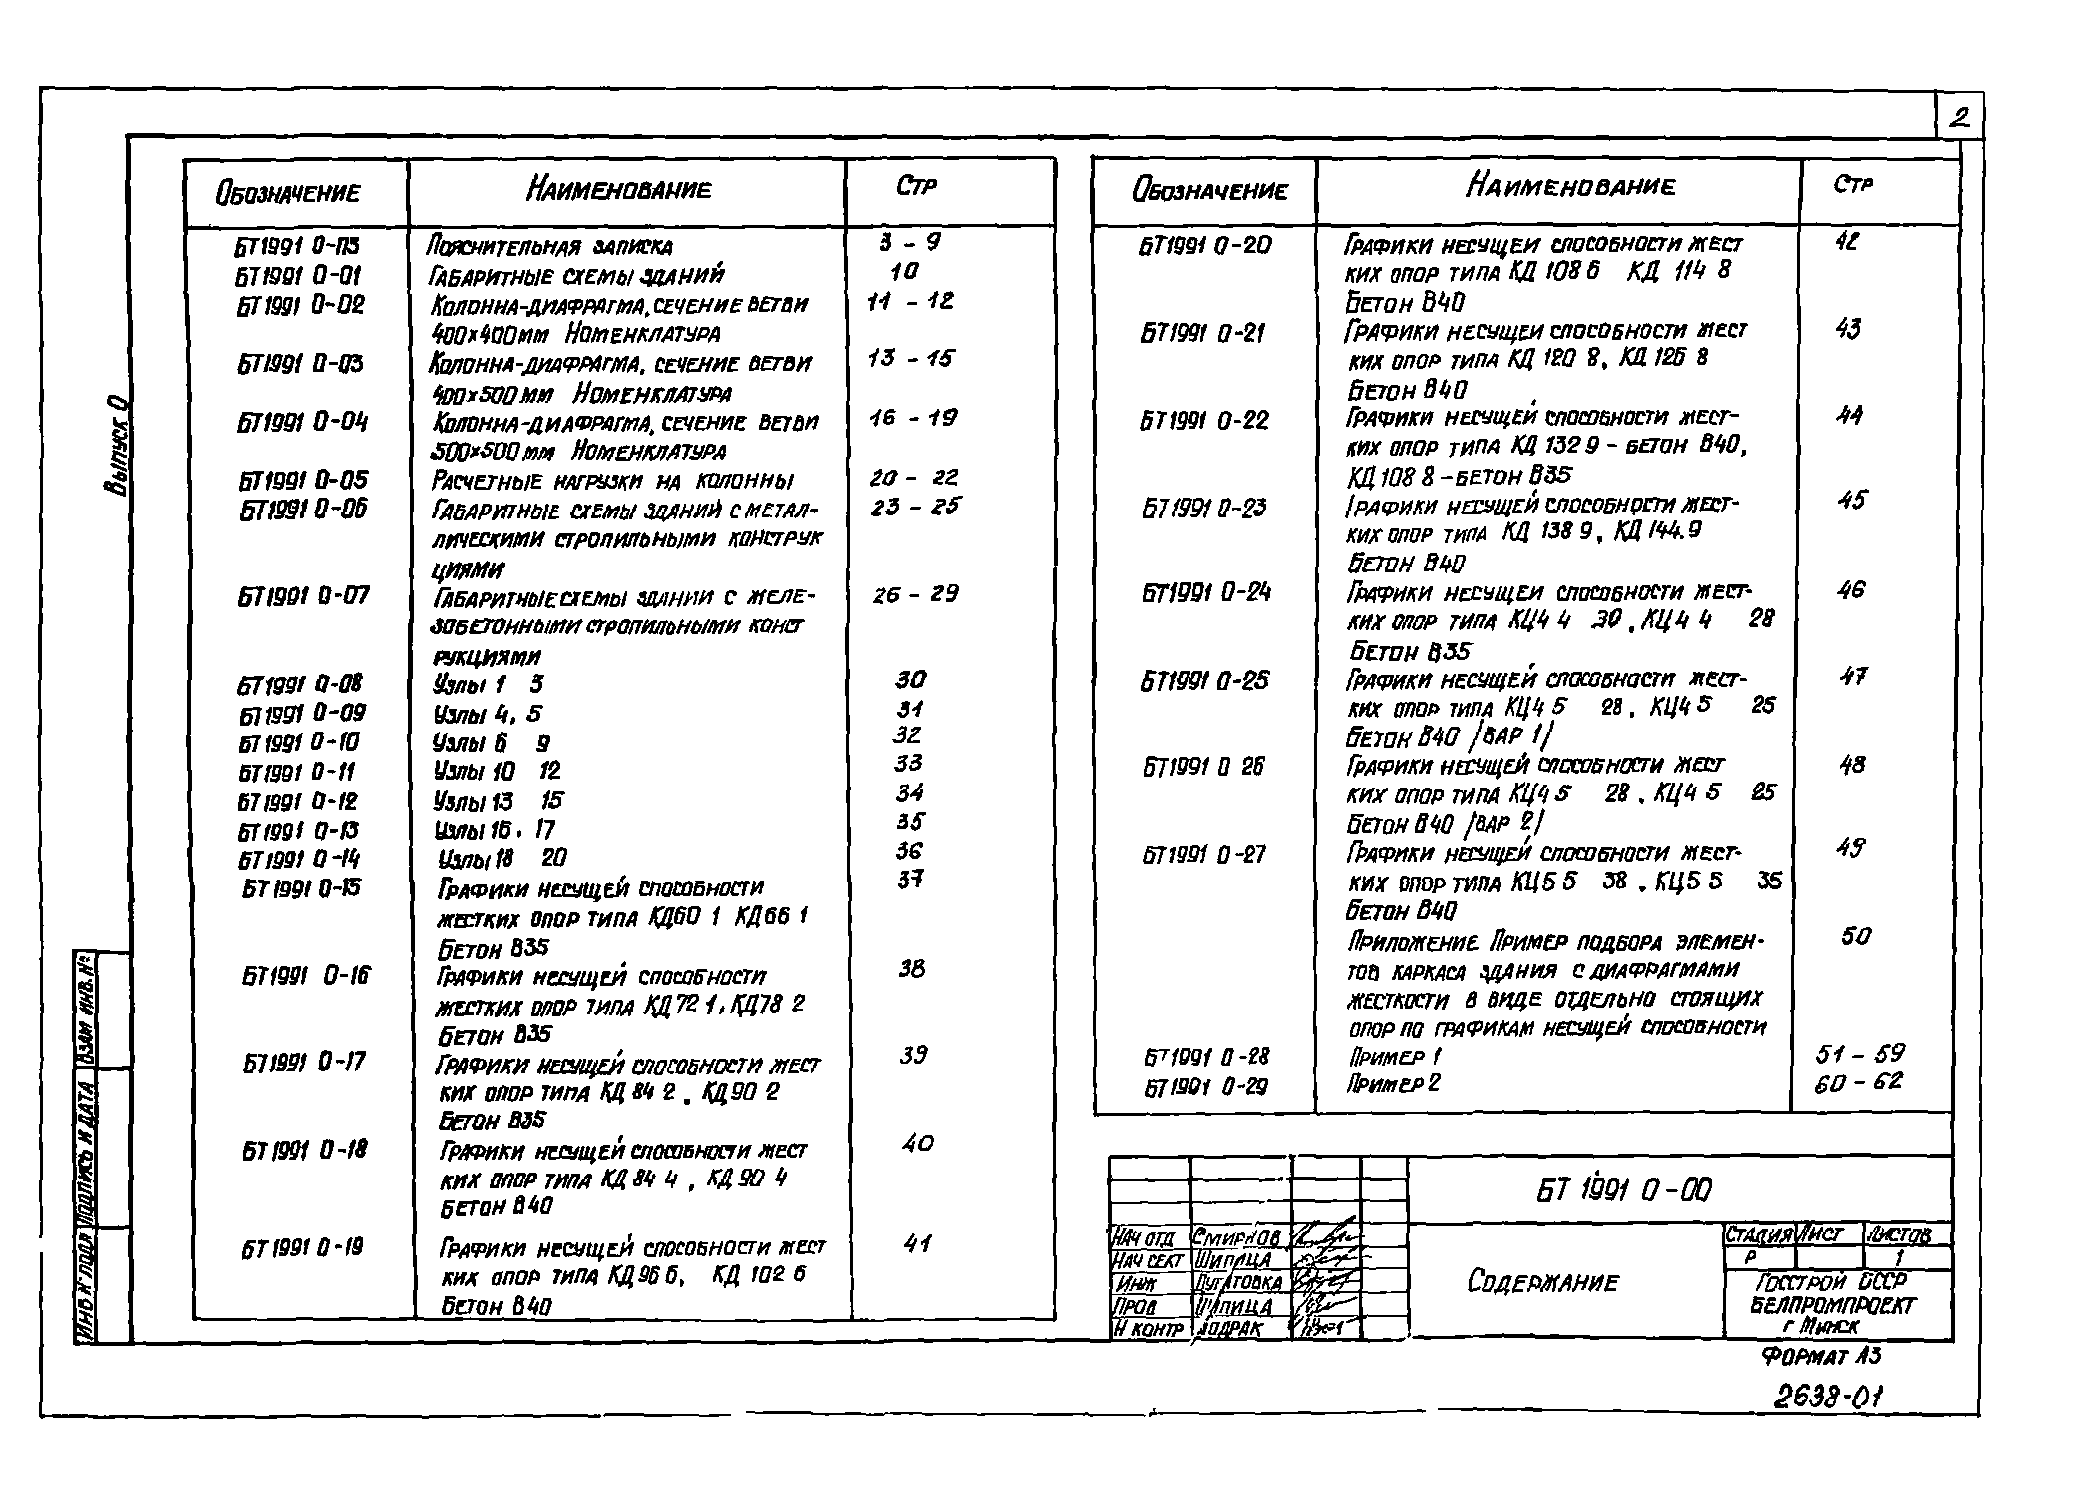 2
Выпуск 0
Обозначение Наименование Стр
БТ1991 0-ПЗ Пояснительная записка 3 - 9
БТ1991 0-01 Габаритные схемы зданий 10
БТ1991 0-02 Колонна-диафрагма, сечение ветви 11 - 12
400×400мм Номенклатура
БТ1991 0-03 Колонна-диафрагма, сечение ветви 13 - 15
400×500мм Номенклатура
БТ1991 0-04 Колонна-диафрагма, сечение ветви 16 - 19
500×500мм Номенклатура
БТ1991 0-05 Расчетные нагрузки на колонны 20 - 22
БТ1991 0-06 Габаритные схемы зданий с метал- 23 - 25
лическими стропильными конструк
циями
БТ1991 0-07 Габаритные схемы здании с желе- 26 - 29
зобетонными стропильными конст
рукциями
БТ1991 0-08 Узлы 1 3 30
БТ1991 0-09 Узлы 4, 5 31
БТ1991 0-10 Узлы 6 9 32
БТ1991 0-11 Узлы 10 12 33
БТ1991 0-12 Узлы 13 15 34
БТ1991 0-13 Узлы 16, 17 35
БТ1991 0-14 Узлы 18 20 36
БТ1991 0-15 Графики несущей способности 37
жестких опор типа КД60 1 КД66 1
Бетон В35
БТ1991 0-16 Графики несущей способности 38
жестких опор типа КД72 1, КД78 2
Бетон В35
БТ1991 0-17 Графики несущей способности жест 39
ких опор типа КД 84 2, КД90 2
Бетон В35
БТ1991 0-18 Графики несущей способности жест 40
ких опор типа КД 84 4, КД 90 4
Бетон В40
БТ1991 0-19 Графики несущей способности жест 41
ких опор типа КД 96 6, КД 102 6
Бетон В40
Обозначение Наименование Стр
БТ1991 0-20 Графики несущеи способности жест 42
ких опор типа КД 108 6 КД 114 8
Бетон В40
БТ1991 0-21 Графики несущеи способности жест 43
ких опор типа КД 120 8, КД 126 8
Бетон В40
БТ1991 0-22 Графики несущей способности жест- 44
ких опор типа КД 132 9 - бетон В40,
КД 108 8 - бетон В35
БТ1991 0-23 Графики несущей способности жест- 45
ких опор типа КД 138 9, КД 144.9
Бетон В40
БТ1991 0-24 Графики несущеи способности жест- 46
ких опор типа КЦ4 4 30, КЦ4 4 28
Бетон В35
БТ1991 0-25 Графики несущей способности жест- 47
ких опор типа КЦ4 5 28, КЦ4 5 25
Бетон В40 /вар 1/
БТ1991 0 26 Графики несущей способности жест 48
ких опор типа КЦ4 5 28, КЦ4 5 25
Бетон В40 /вар 2/
БТ1991 0-27 Графики несущей способности жест- 49
ких опор типа КЦ5 5 38, КЦ5 5 35
Бетон В40
Приложение Пример подбора элемен- 50
тов каркаса здания с диафрагмами
жесткости в виде отдельно стоящих
опор по графикам несущей способности
БТ1991 0-28 Пример 1 51 - 59
БТ1991 0-29 Пример 2 60 - 62
БТ 1991 0-00
Нач отд Смирнов
Нач сект Шипица
Инж Пугатовка
Пров Шипица
Н контр
Содержание
Стадия Лист Листов
Р 1
Госстрой БССР
Белпромпроект
г Минск
Формат А3
2638-01
Взам инв. №
Подпись и дата
Инв № подл